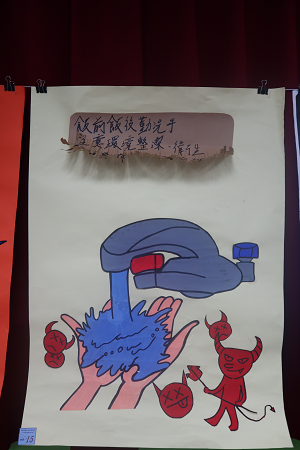 飯前飯後勤洗手
注重環境整潔·衛生
15